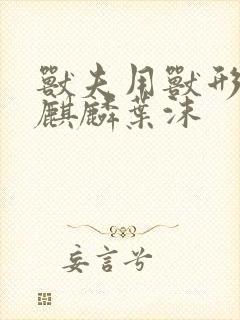 獸夫用獸形
麒麟葉沫
妄言兮